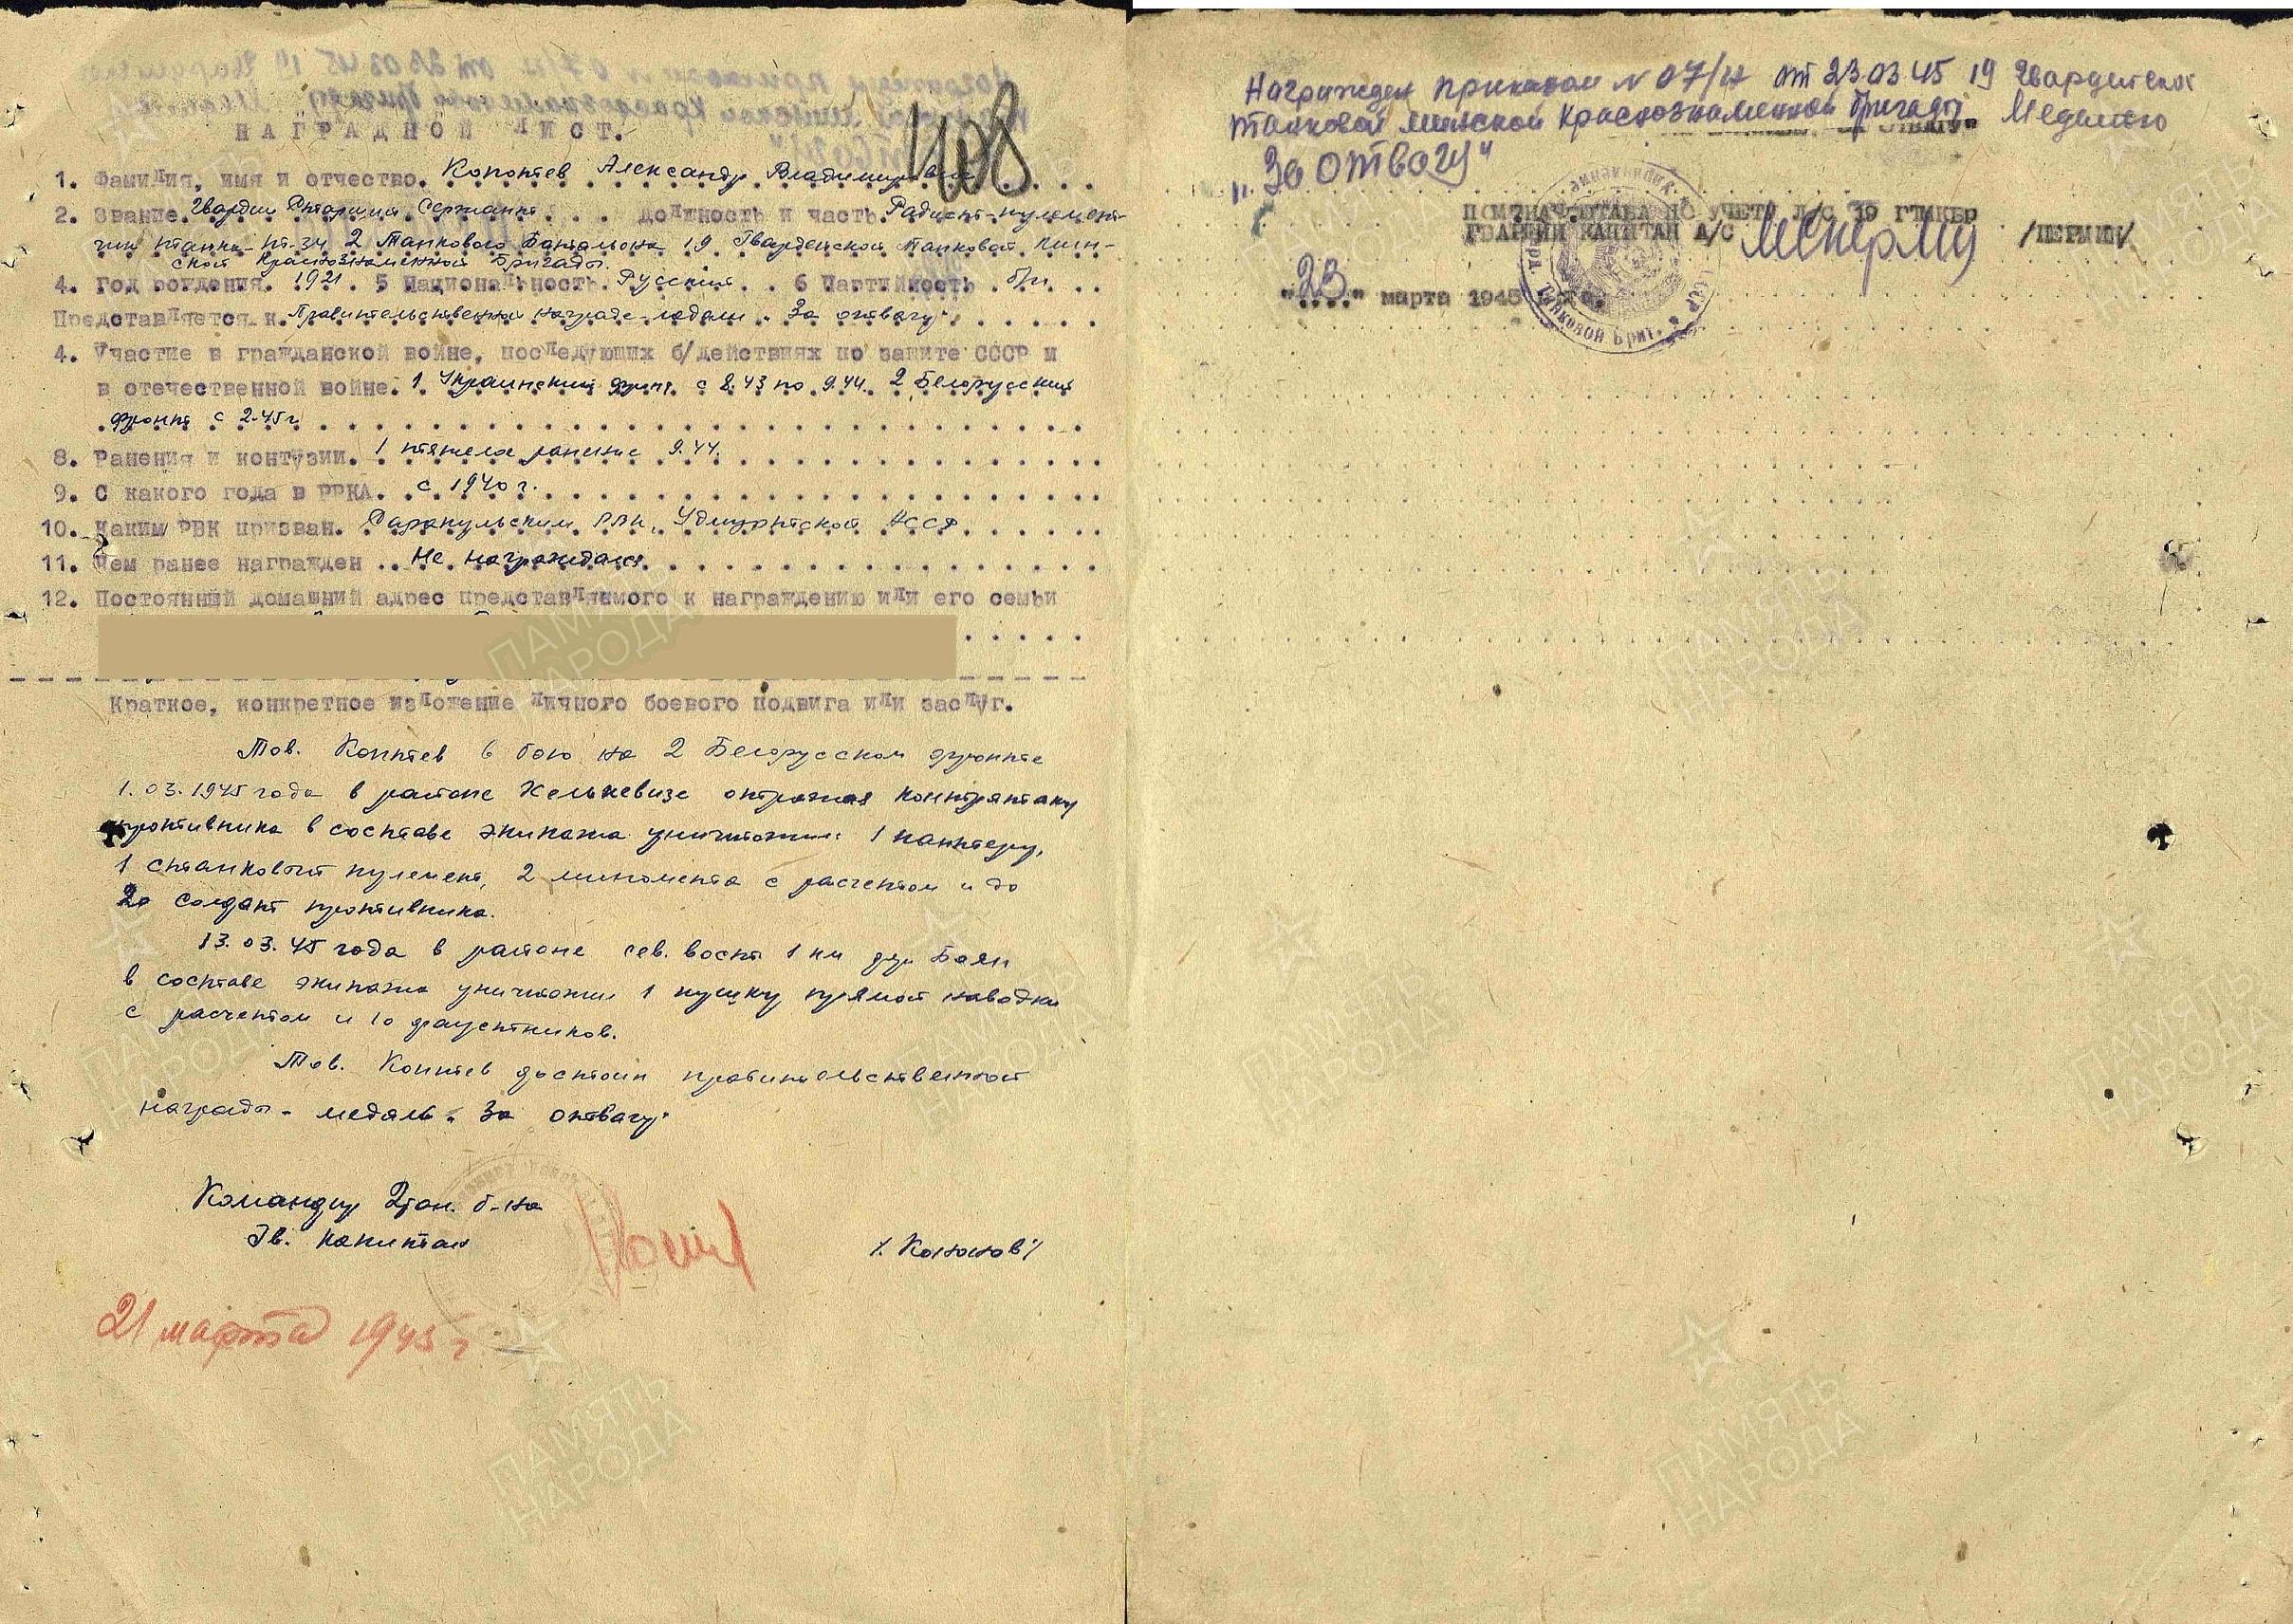 НАГРАДНОЙ ЛИСТ.
1408
1. Фамилия, имя и отчество. Коптев Александр Владимирович
2. Звание. Гвардии Старший Сержант. должность и часть. Радист-пулемет-
чик танка Т-34 2 Танкового Батальона 19 Гвардейской Танковой Мин-
ской Краснознаменной бригады.
4. Год рождения. 1921. 5 Национальность. Русский. 6 Партийность б/п
Представляется к. Правительственной награде - медали "За отвагу"
4. Участие в гражданской войне, последующих б/действиях по защите СССР и
в отечественной войне. 1 Украинский фронт с 8.43 по 9.44. 2 Белорусский
фронт с 2.45 г.
8. Ранения и контузии. 1 тяжело ранение 9.44.
9. С какого года в РККА. с 1940 г.
10. Каким РВК призван. Сарапульским РВК, Удмуртской АССР
11. Чем ранее награжден Не награждался
12. Постоянный домашний адрес представляемого к награждению или его семьи
Краткое, конкретное изложение личного боевого подвига или заслуг.
Тов. Коптев в бою на 2 Белорусском фронте
1.03.1945 года в районе Хелькевизе отражая контратаку
противника в составе экипажа уничтожил 1 пантеру,
1 станковый пулемет, 2 миномета с расчетом и до
20 солдат противника.
13.03.45 года в районе сев. вост 1 км Боян
в составе экипажа уничтожил 1 пушку прямой наводки
с расчетом и 10 фаустников.
Тов. Коптев достоин правительственной
награды - медаль "За отвагу"
Командир 2 тан. б-на
Гв. капитан /Кононов/
21 марта 1945 г
Награжден приказом N 07/н от 23.03.45 19 Гвардейской
танковой минской Краснознаменной бригады Медалью
"За отвагу"
ПОМ НАЧ ШТАБА ПО УЧЕТУ Л/С 19 ГТМКБР
ГВАРДИИ КАПИТАН А/С
"23" марта 1945
Танковой Бриг.
ПАМЯТЬ
НАРОДА